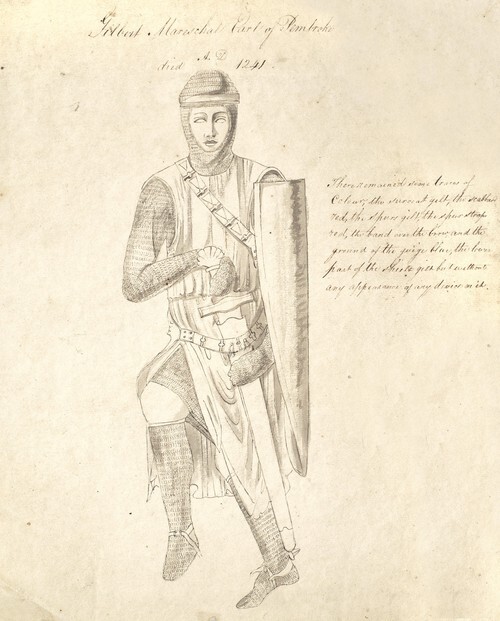 Gilbert Mareschal Earl of Pembroke
died A.D. 1241.
There remained some traces of
Colour, the surcoat gilt, the scabbard
red, the spurs gilt, the spur straps
red, the band over the brow and the
ground of the guige blue, the inner
part of the Shield gilt but without
any appearance of any device on it.